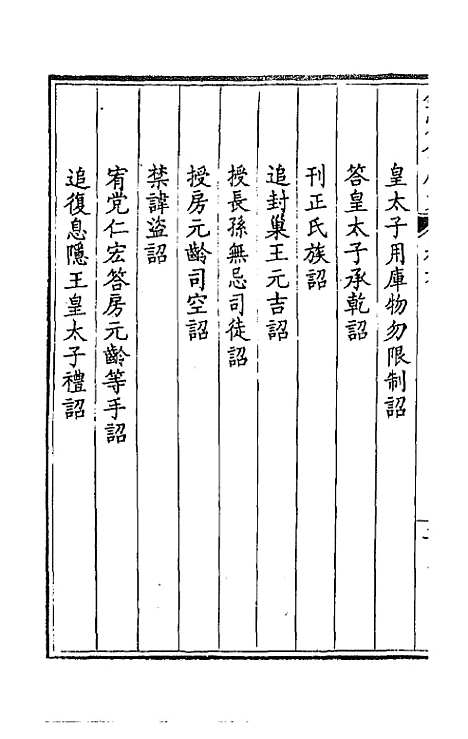 皇太子用庫物勿限制詔
答皇太子承乾詔
刊正氏族詔
追封巢王元吉詔
授長孫無忌司徒詔
授房元齡司空詔
禁諱盜詔
宥党仁宏答房元齡等手詔
追復息隱王皇太子禮詔